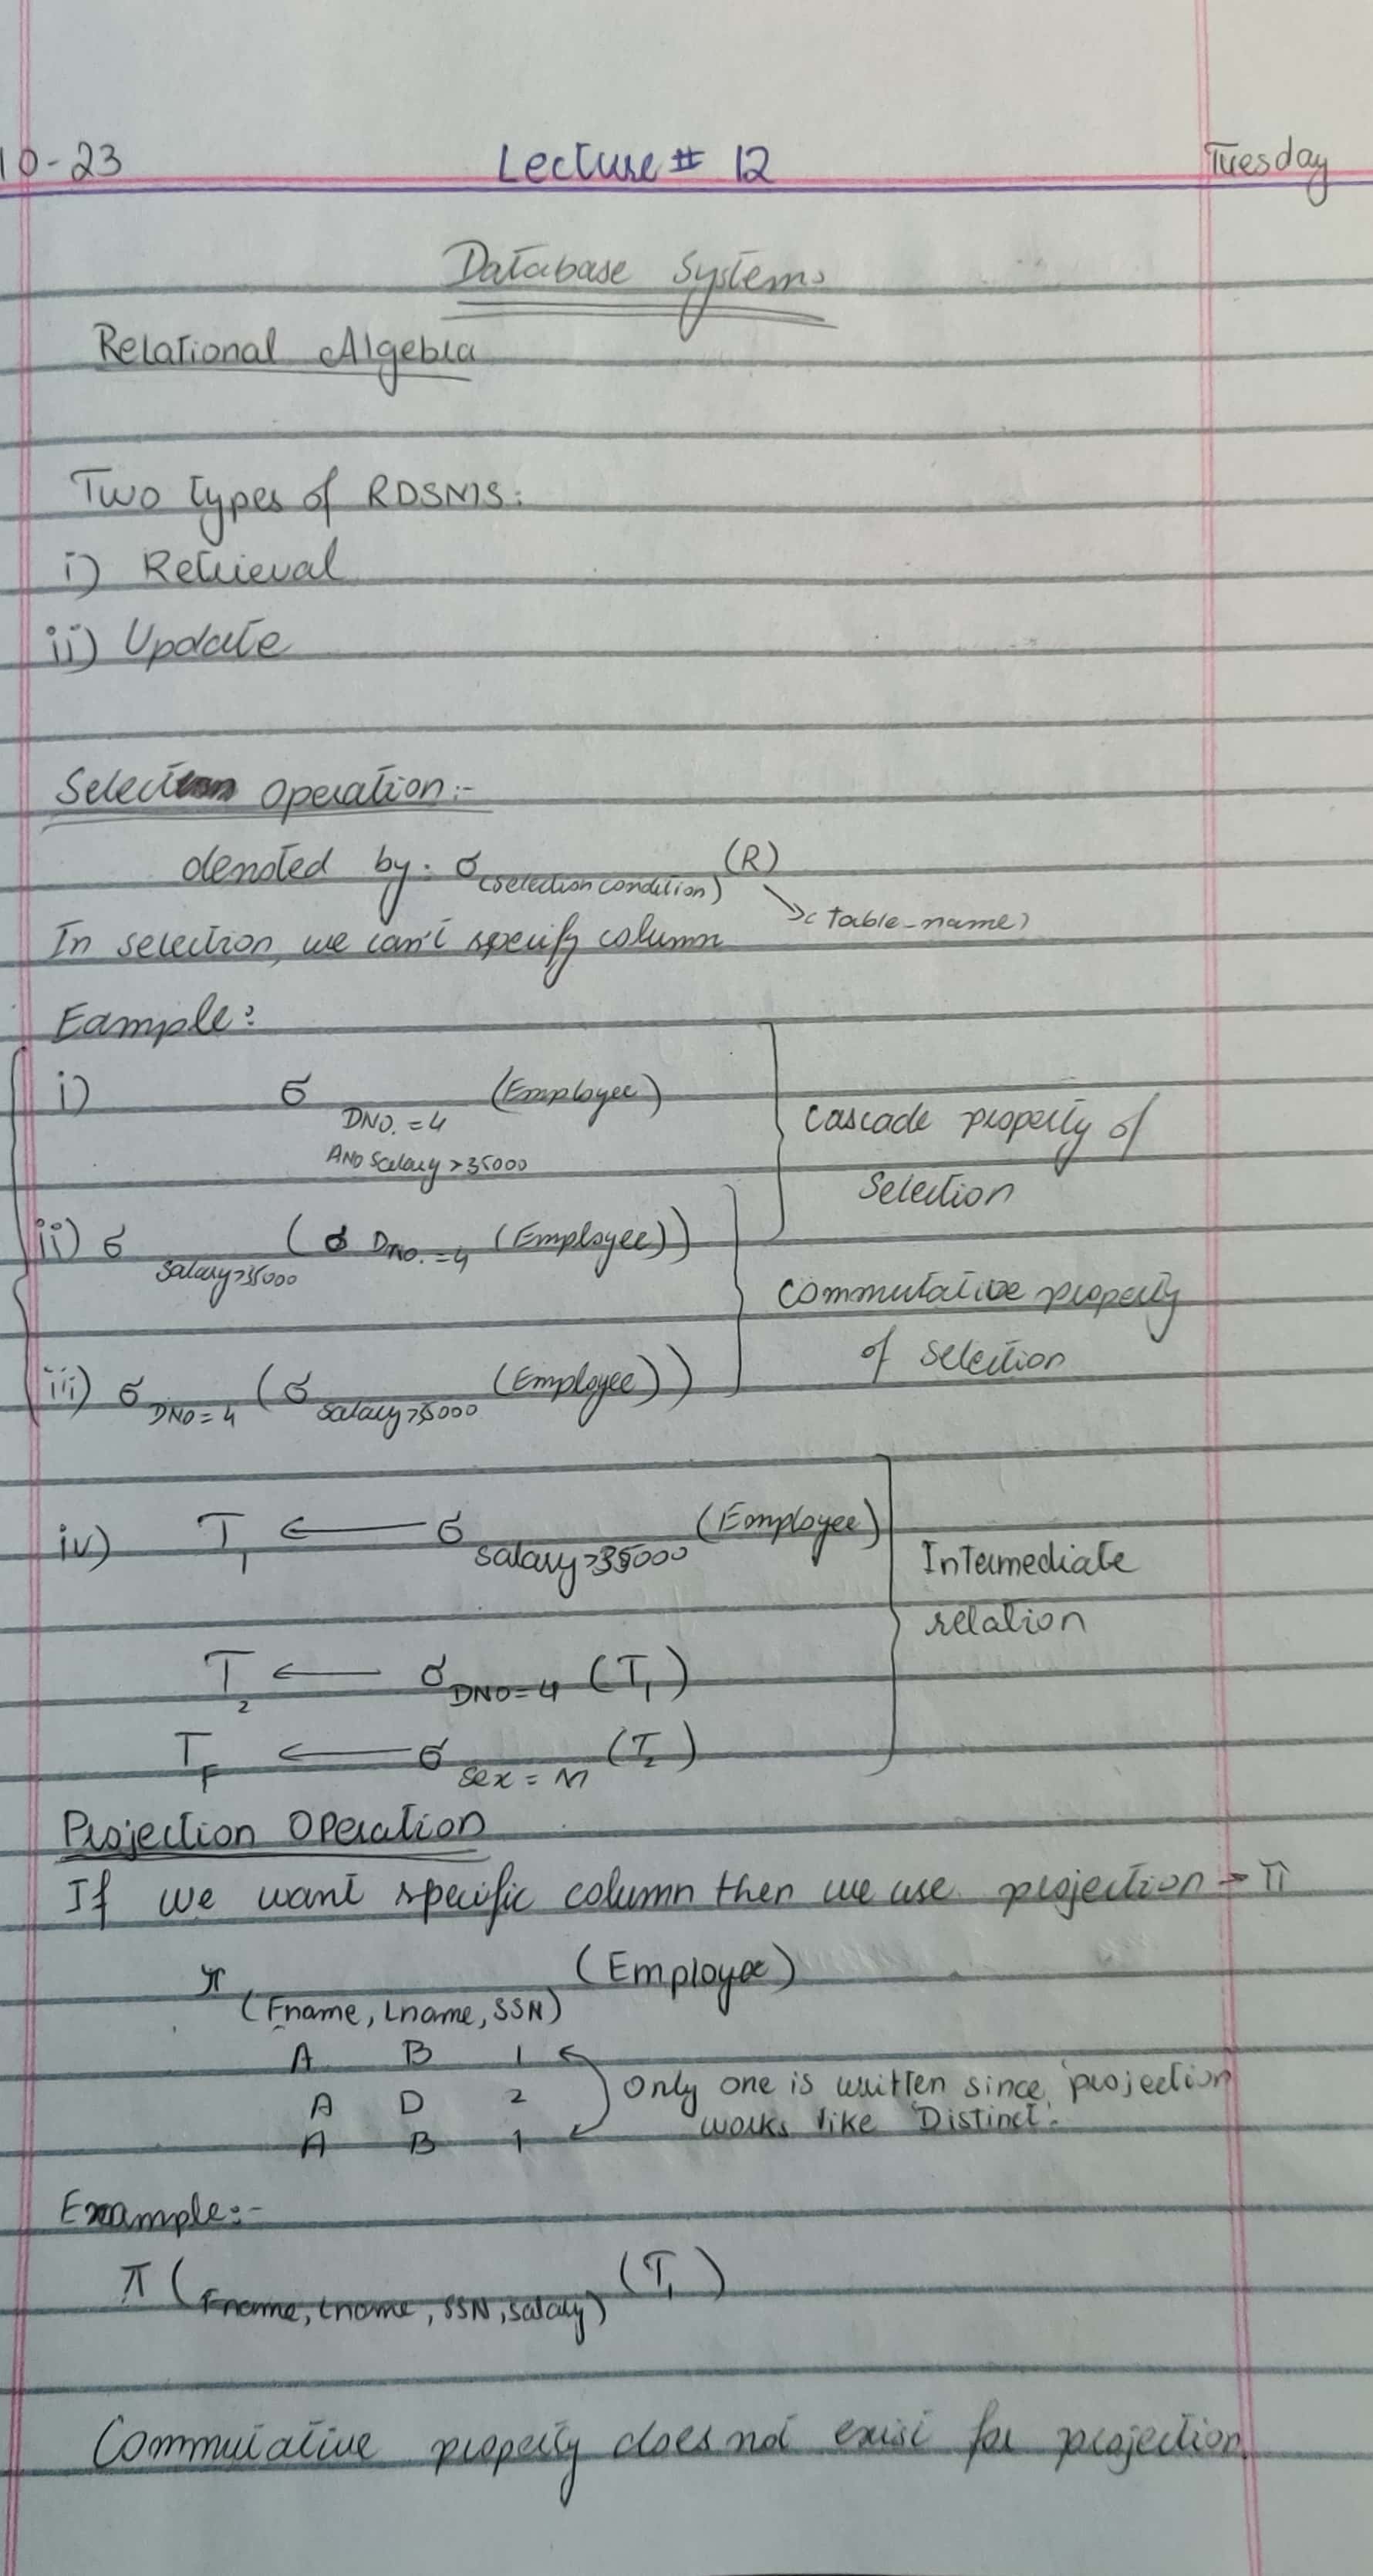 10-23 Lecture # 12 Tuesday
Database Systems
Relational Algebra
Two types of RDSMS:
i) Retrieval
ii) Update
Selection Operation:-
denoted by: σ (selection condition) (R)
→ <table_name>
In selection, we can't specify column
Eample:
i) σ DNO. = 4 (Employee)
AND Salary > 35000
Cascade property of
Selection
ii) σ Salary>35000 (σ DNO. = 4 (Employee))
Commutative property
of selection
iii) σ DNO = 4 (σ Salary>35000 (Employee))
iv) T1 ← σ Salary>35000 (Employee)
Intermediate
relation
T2 ← σ DNO=4 (T1)
TF ← σ Sex = M (T2)
Projection Operation
If we want specific column then we use projection - π
π (Fname, Lname, SSN) (Employee)
A B 1
A D 2
A B 1
Only one is written since projection
works like 'Distinct'.
Example:-
π (Fname, Lname, SSN, Salary) (T1)
Commutative property does not exist for projection.